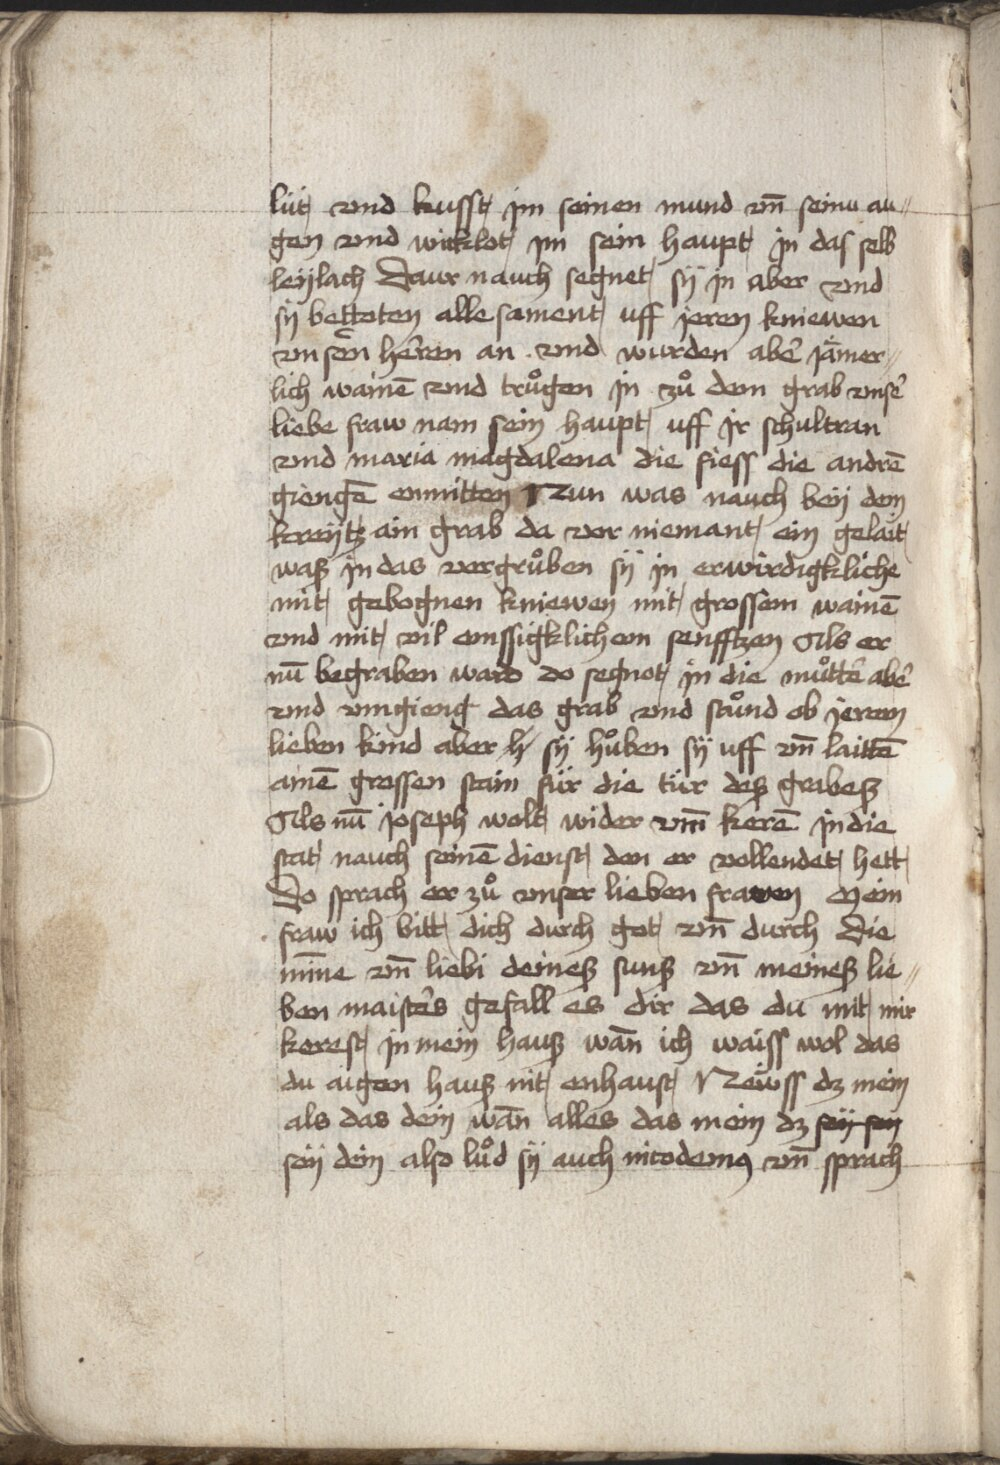 lüt vnd kusst im seinen mund vn̄ seinu au„
gen vnd wicklot im sein haupt in das selb
leÿlach Daur nauch segnet sÿ in aber vnd
sÿ bettoten alle sament uff ieren kniewen
vnsern̄ herren an . vnd wurden aber̄ jämer„
lich wainē vnd trůgen in zů dem grab vnser̄
liebe fraw nam sein haupt uff ir schultran
vnd maria magdalena die fiess die andrē
giengē enmitten Nun was nauch beÿ dem
kreÿtz ain grab da vor niemant ein gelait
waß in das vergrůben sÿ in erwirdigkliche
mit gebognen kniewen mit grossem wainē
vnd mit vil emssigklichem seufftzen Als er
nū begraben ward do segnot in die můtter̄ aber̄
vnd vmgieng das grab vnd stůnd ob ierem
lieben kind aber h sÿ hůben sÿ uff vn̄ laittē
ainē grossen stain für die tür deß grabeß
Als nū ioseph wolt wider vm̄ kerē in die
stat nauch seinē dienst den er vollendet hett
Do sprach er zů vnser lieben frawen Mein
fraw ich bitt dich durch got vn̄ durch die
min̄e vn̄ liebi deineß sunß vn̄ meineß lie„
ben maister̄s gefall es dir das du mit mir
kerest in mein hauß wān ich waiss wol das
du aigen hauß nit enhaust Neẅss dz mein
als das dein wān alles das mein dz seÿ sey
seÿ dein also lůd sÿ auch nicodemꝰ vn̄ sprach